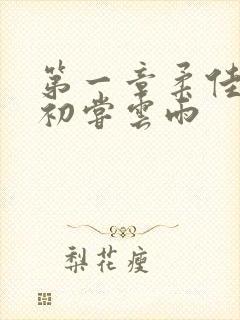 第一章柔佳
初嘗雲雨
梨花瘦